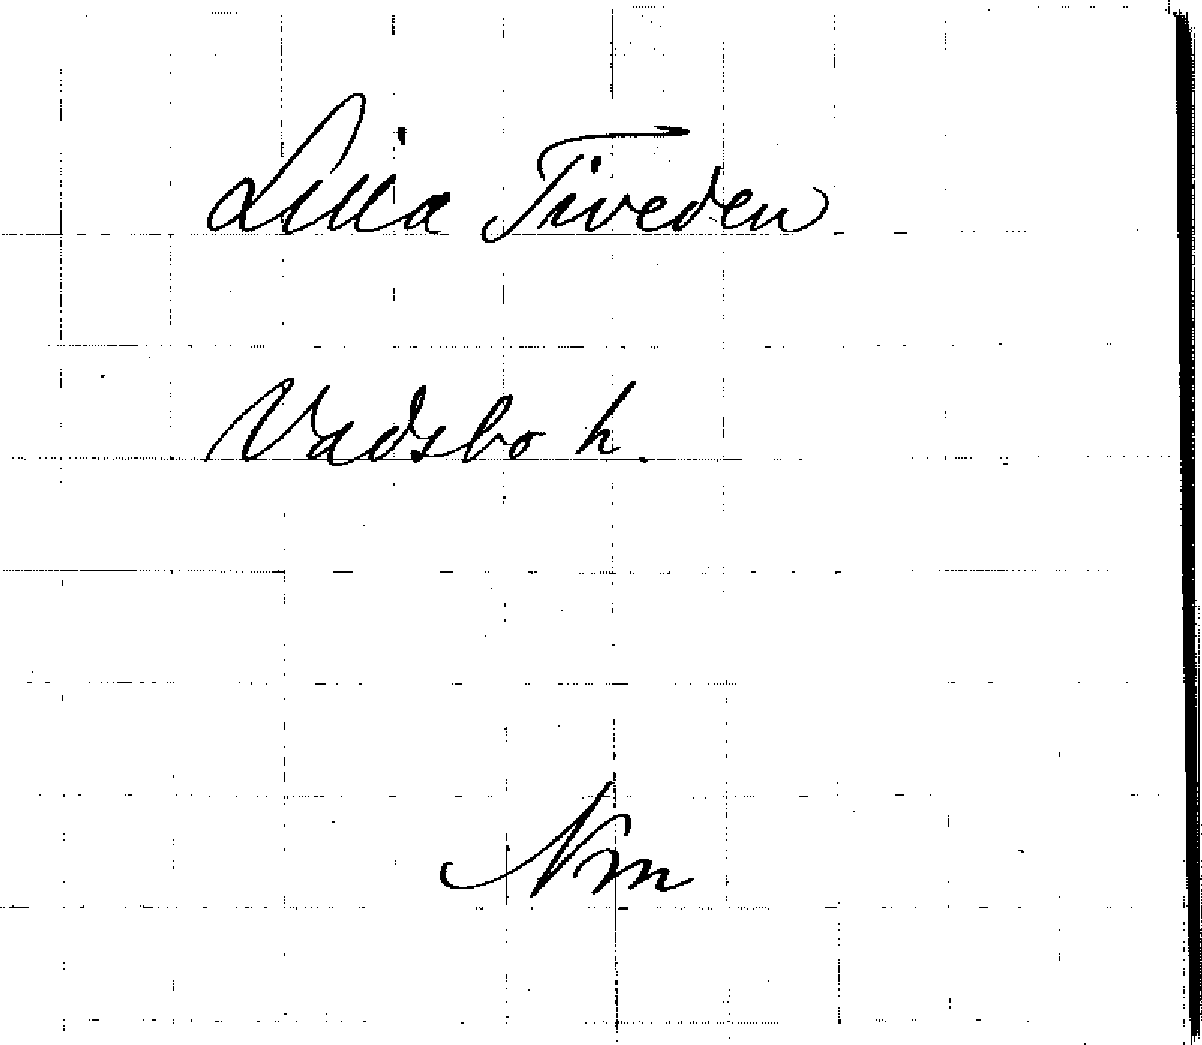 Lilla Tiveden
Vadsbo h.
Nm